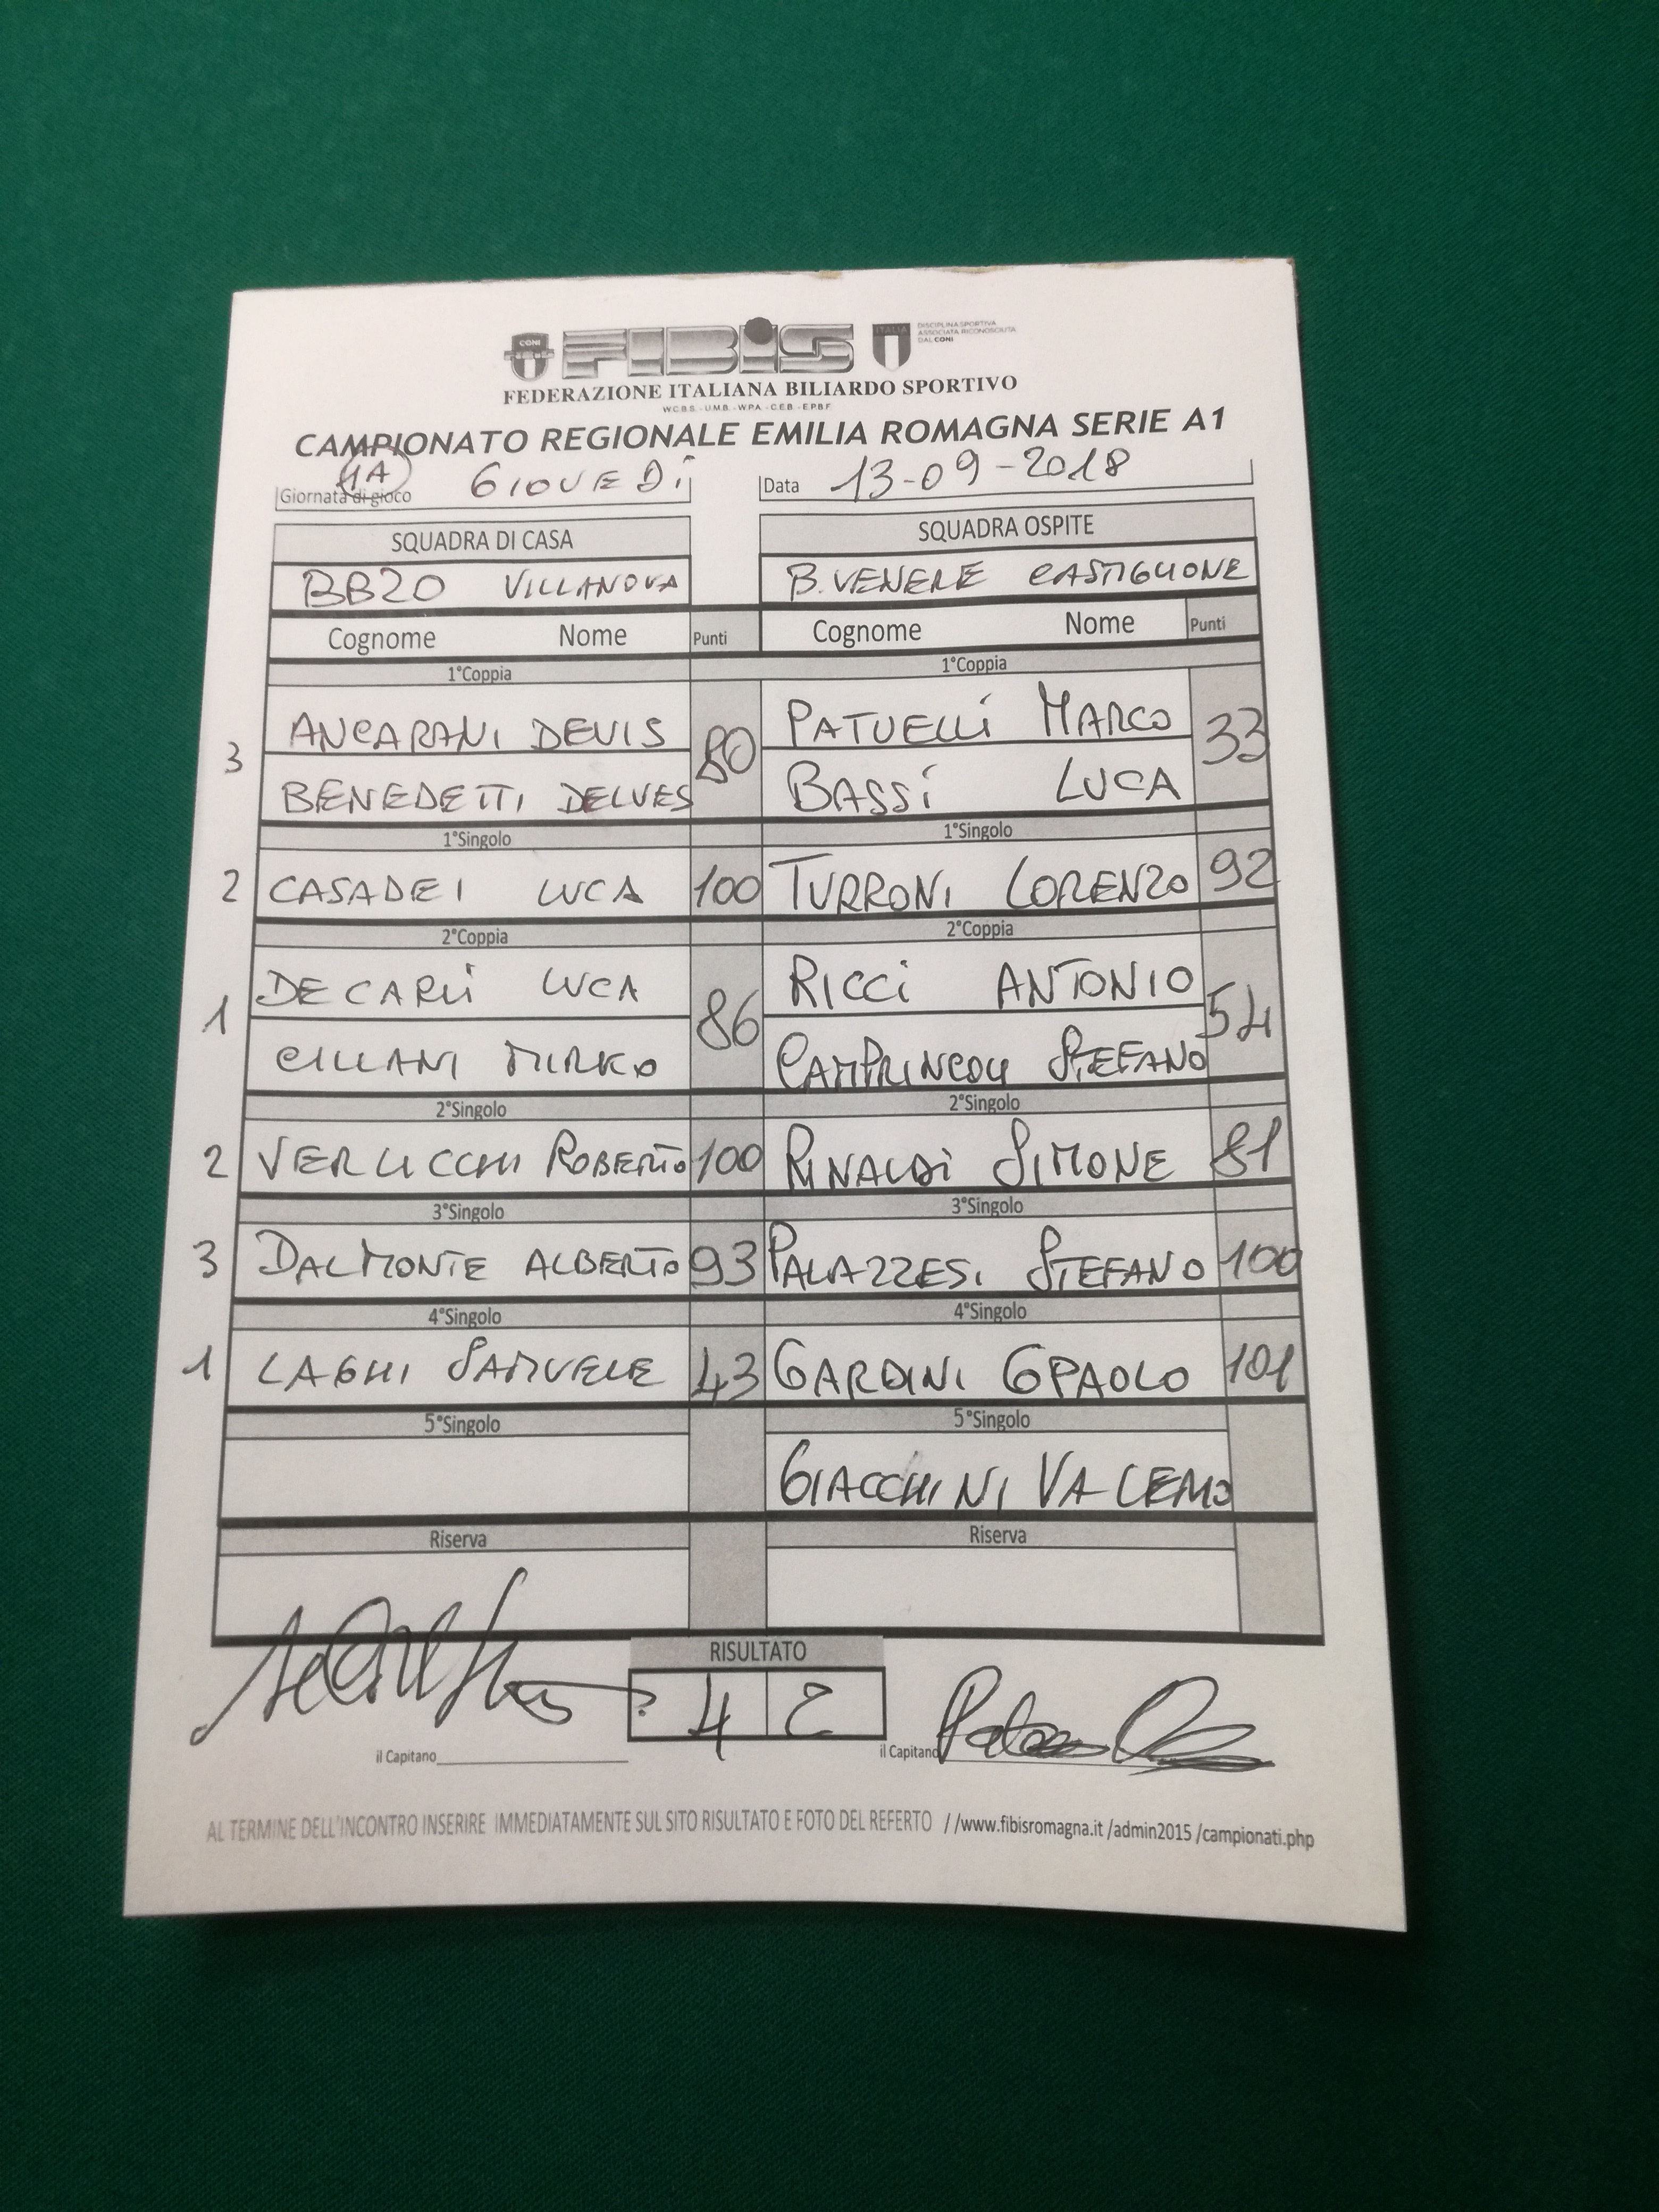 CONI
FIBIS
ITALIA
DISCIPLINA SPORTIVA
ASSOCIATA RICONOSCIUTA
DAL CONI
FEDERAZIONE ITALIANA BILIARDO SPORTIVO
W.C.B.S. - U.M.B. - W.P.A. - C.E.B. - E.P.B.F.
CAMPIONATO REGIONALE EMILIA ROMAGNA SERIE A1
Giornata di gioco 1A GIOVEDì Data 13-09-2018
SQUADRA DI CASA SQUADRA OSPITE
BB20 VILLANOVA B. VENERE CASTIGLIONE
Cognome Nome Punti Cognome Nome Punti
1°Coppia 1°Coppia
ANCARANI DEVIS PATUELLI MARCO
3 80 33
BENEDETTI DELVES BASSI LUCA
1°Singolo 1°Singolo
2 CASADEI LUCA 100 TURRONI LORENZO 92
2°Coppia 2°Coppia
DE CARLI LUCA RICCI ANTONIO
1 86 54
CILLANI MIRKO CAMPRINCOLI STEFANO
2°Singolo 2°Singolo
2 VERLICCHI ROBERTO 100 RINALDI SIMONE 81
3°Singolo 3°Singolo
3 DALMONTE ALBERTO 93 PALAZZESI STEFANO 100
4°Singolo 4°Singolo
1 LAGHI SAMUELE 43 GARDINI GPAOLO 101
5°Singolo 5°Singolo
GIACCHINI
Riserva Riserva
RISULTATO
4 2
il Capitano il Capitano
AL TERMINE DELL'INCONTRO INSERIRE IMMEDIATAMENTE SUL SITO RISULTATO E FOTO DEL REFERTO //www.fibisromagna.it /admin2015 /campionati.php